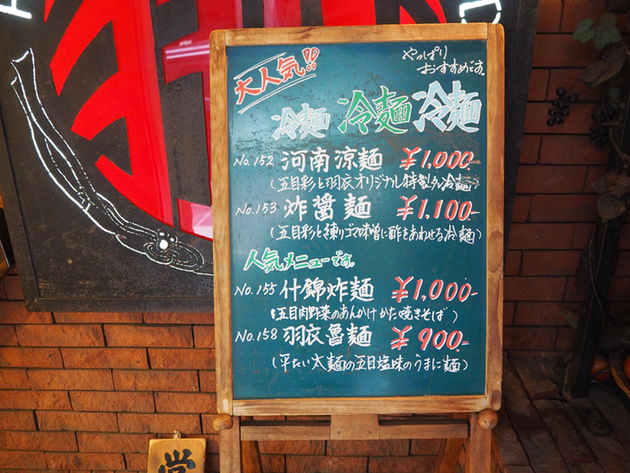 大人気!!
やっぱり
おすすめです。
冷麺 冷麺 冷麺
No.152 河南涼麺 ¥1,000-
(五目彩と羽衣オリジナル特製ダレ冷麺)
No.153 炸醤麺 ¥1,100-
(五目彩と練りゴマ味噌に酢をあわせる冷麺)
人気メニューです。
No.155 什錦炸麺 ¥1,000-
(五目肉野菜のあんかけかた焼きそば)
No.158 羽衣魯麺 ¥900-
(平たい太麺の五目塩味のうまに麺)
営